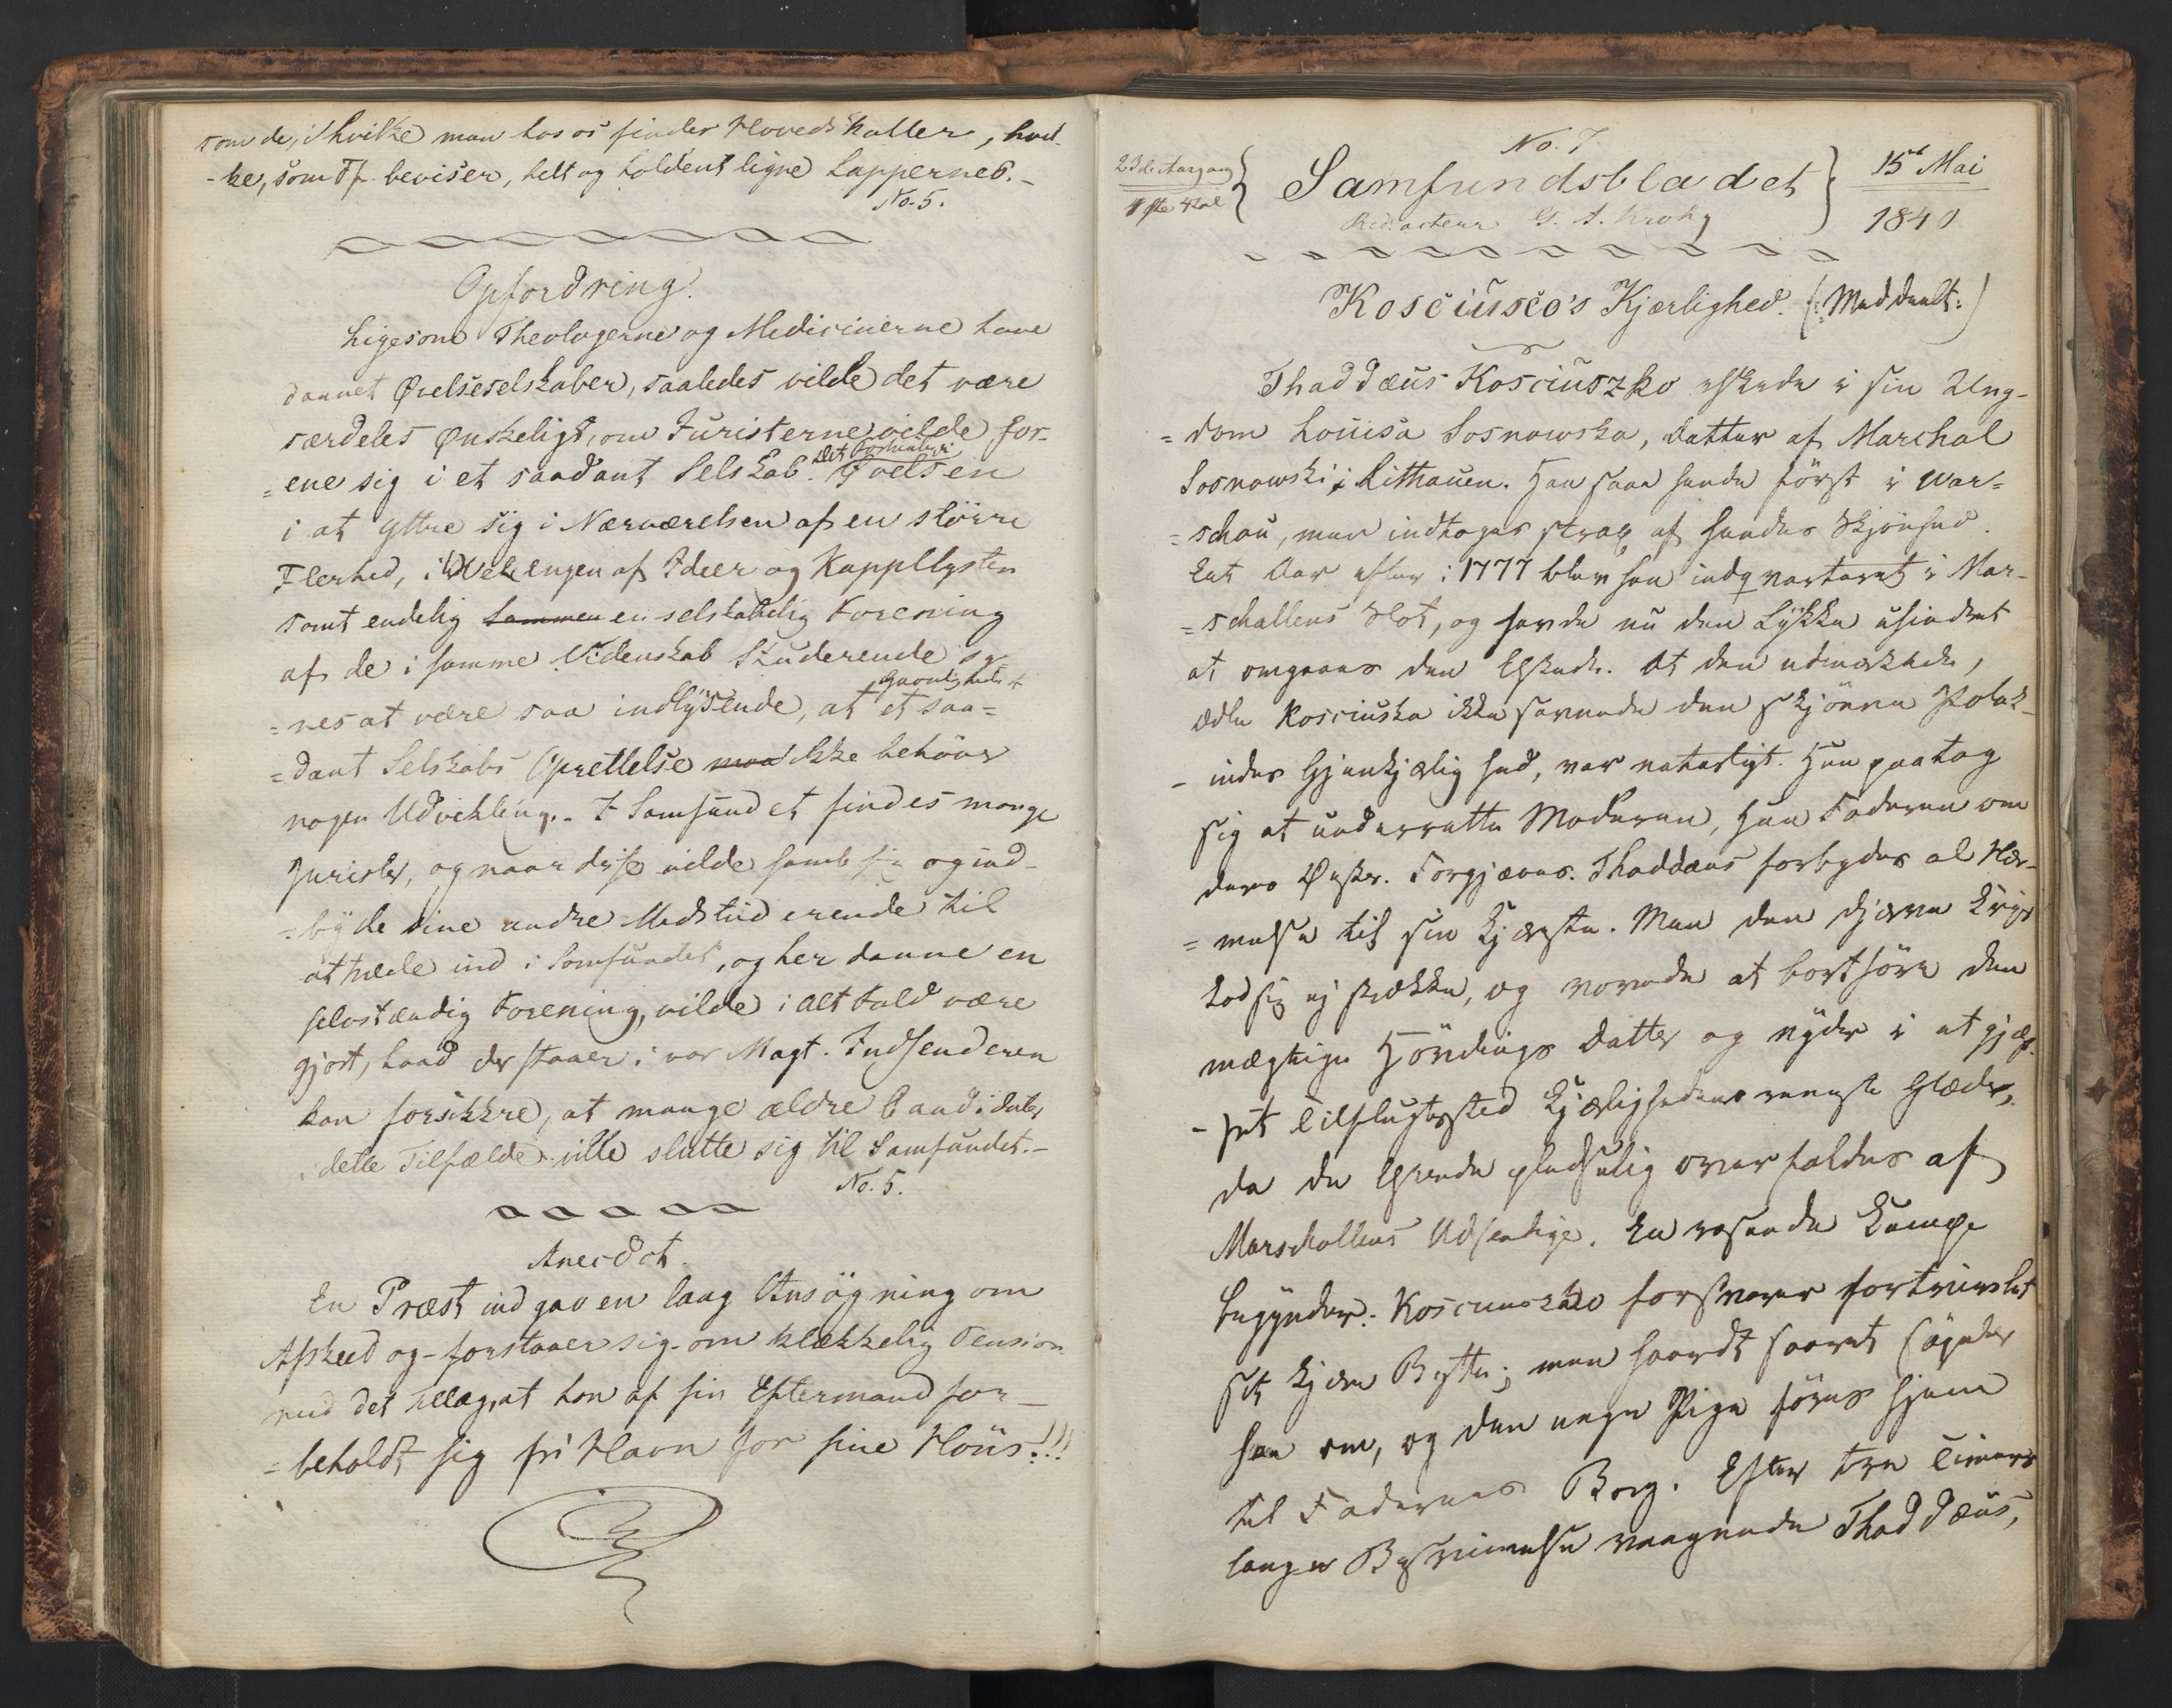 som de, i hvilke man hos os finder Hovedskaller, hvil-
-ke, som Ff. beviser, helt og holdent ligne Lappernes.-
No. 5.
Opfordring.
Ligesom Theologerne og Medicinerne have
dannet Øvelsesselskaber, saaledes vilde det være
særdeles Ønskeligt, om Juristerne vilde for-
=ene sig i et saadant Selskab. Øvelsen
i at yttre sig i Nærværelsen af en större
Flerhed, i af Ideer og Kapplysten
samt endelig en selskabelig Forening
af de i samme Videnskab Studerende sy-
=nes at være saa indlysende, at et saa=
=dant Selskabs Oprettelse maa ikke behöve
nogen Udvikling.- I Samfundet findes mange
Jurister, og naar disse vilde samle sig og ind-
=byde sine andre Medstuderende til
at træde ind i Samfundet, og her danne en
selvstændig Forening, vilde i alt Fald være
gjort, hvad der staaer i vor Magt. Indsenderen
kan forsikkre, at mange ældre Candidater
i dette Tilfælde ville slutte sig til Samfundet.-
No. 5.
Anecdot.
En Præst indgav en lang Ansögning om
Afsked og - forstaaer sig - om klækkelig Pension
med det Tillæg, at han af sin Eftermand for-
=beholdt sig fri Havn for sine Höns!!!
No. 7.
23de Aargang
1ste Hal
Samfundsbladet
15d Mai
1840
Redacteur G. A. Krohg
Kosciusco's Kjærlighed. (: Meddeelt :)
Thaddæus Kosciuszko elskede i sin Ung-
=dom Louisa Sosnowska, Datter af Marchal
Sosnowski i Litthauen. Han saae hende först i War=
=schau, men indtoges strax af hendes Skjönhed.
Eet Aar efter i 1777 blev han indqvarteret i Mar-
=schallens Slot, og havde nu den Lykke uhindret
at omgaaes den Elskede. At den udmærkede,
ædle Kosciusko ikke savnede den skjönne Polak-
-indes Gjenkjærlighed, var naturligt. Hun paatog
sig at underrette Moderen, Han Faderen om
deres Ønsker. Forgjæves. Thaddæus forbydes al Nær-
=melse til sin Kjæreste. Men den djærve Kriger
lod sig ej skrække, og vovede at bortföre den
mægtige Hövdings Datter og nyder i et gjæst-
-frit Tilflugtssted Kjærlighedens reneste Glæder,
da de Elskende pludselig overfaldes af
Marschallens Udsendige. En rasende Kamp
begynder. Kosciuszko forsvarer fortvivlet
sit kjære Bytte; men haardt saaret segner
han om, og den unge Pige föres hjem
til Faderens Borg. Efter tre Timers
lange Besvimelse vaagnede Thaddæus,